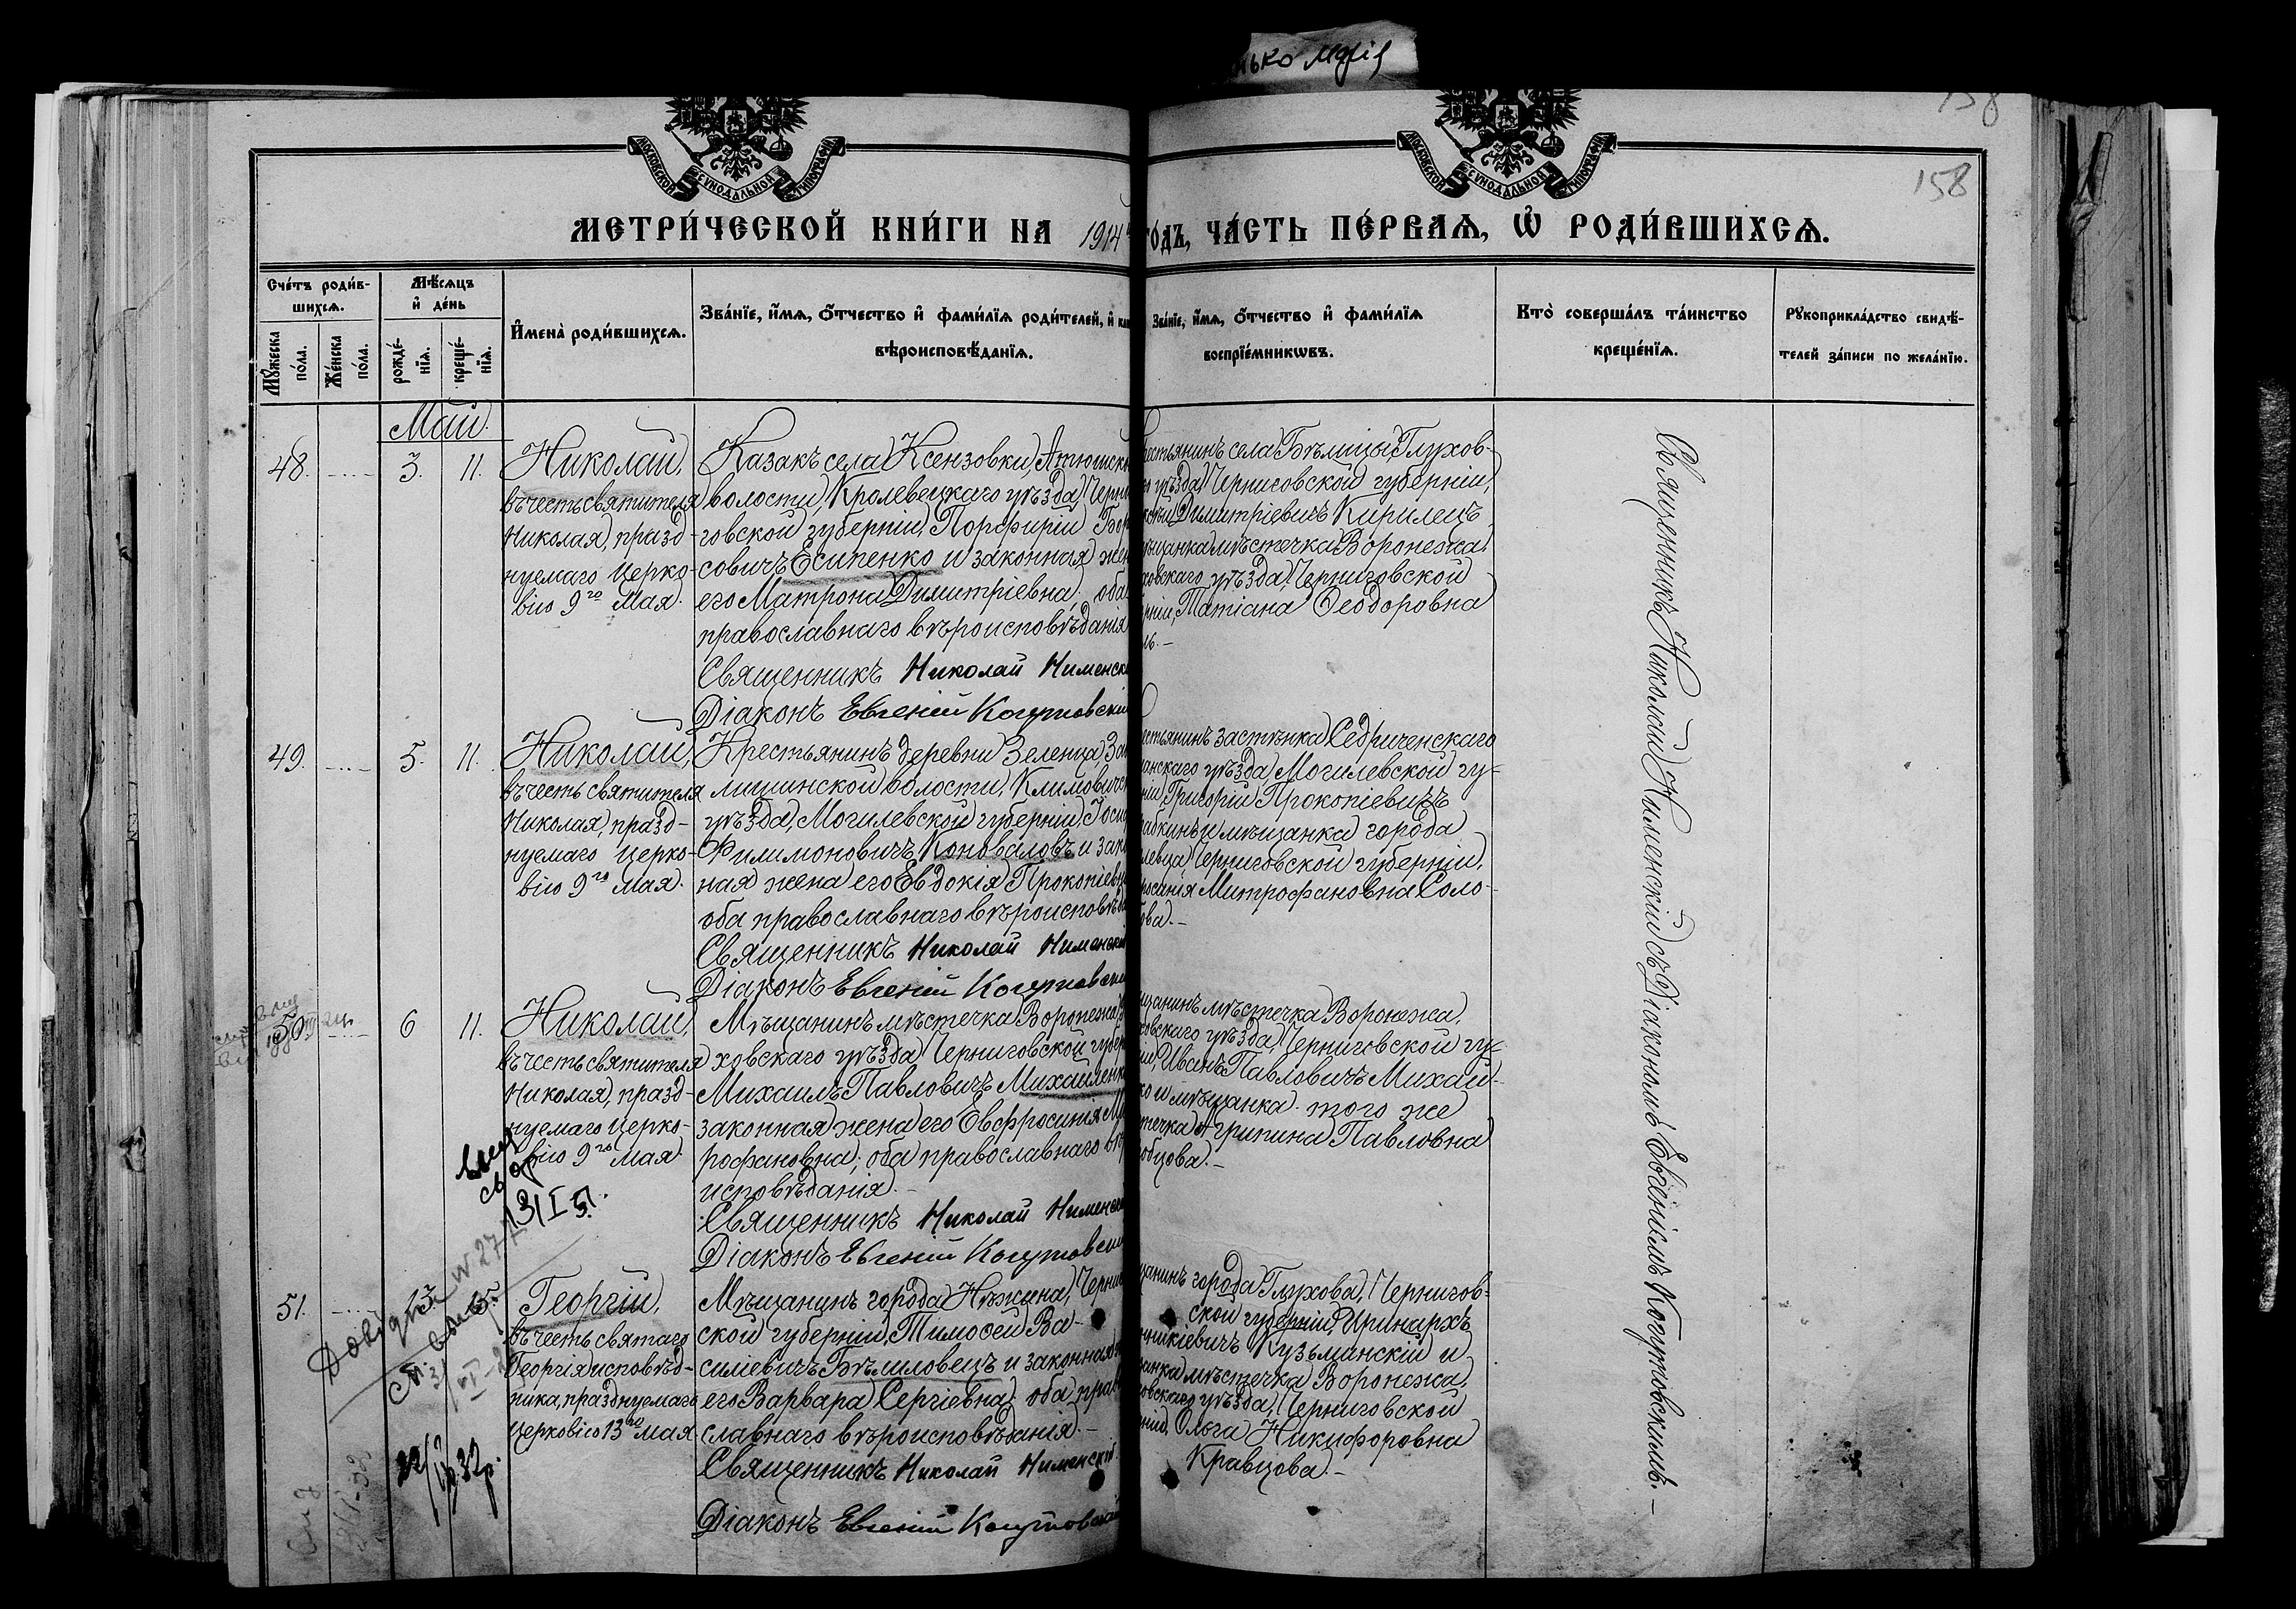 лько Марія
158
158
МОСКОВСКОЙ СУНОДАЛЬНОЙ ТИПОГРАФІИ
МОСКОВСКОЙ СУНОДАЛЬНОЙ ТИПОГРАФІИ
МЕТРИ́ЧЕСКОЙ КНИ́ГИ НА 1914й ГОДЪ, ЧА́СТЬ ПЕ́РВАѦ, Ѡ РОДИ́ВШИХСѦ.
Сче́тъ роди́в-
шихсѧ.
Мꙋ́жеска по́ла.
Же́нска по́ла.
Мѣ́сѧцъ
и҆ де́нь
рожде́-
нїѧ.
креще́-
нїѧ.
И҆мена̀ роди́вшихсѧ.
Зва́нїе, и҆́мѧ, о҆́тчество и҆ фами́лїѧ роди́телей, и҆
вѣроисповѣ́данїѧ.
Зва́нїе, и҆́мѧ, о҆́тчество и҆ фами́лїѧ
воспрїе́мникѡвъ.
Кто̀ соверша́лъ та́инство
креще́нїѧ.
Рꙋкоприкла́дство свидѣ́-
телей за́писи по жела́нїю.
Май.
48.
3.
11.
Николай,
въ честь святителя
Николая, празд-
нуемаго Церко-
вію 9го Мая.
Казакъ села Ксензовки, Атюшск
волости, Кролевецкаго уѣзда, Черни
говской губерніи, Порфирій Бор
совичъ Есипенко и законная жен
его Матрона Димитріевна, оба
православнаго вѣроисповѣданія
Священникъ Николай Нименск
Діаконъ Евгеній Когутовскій
естьянинъ села Бѣлицы, Глухов-
уѣзда, Черниговской губерніи,
Димитріевичъ Кирилецъ
щанка мѣстечка Воронежа,
ховскаго уѣзда, Черниговской
рніи, Татіана Ѳеодоровна
ь. –
49.
5.
11.
Николай,
въ честь святителя
Николая, празд-
нуемаго Церко-
вію 9го Мая.
Крестьянинъ деревни Зеленца, За
лишинской волости, Климовичс
уѣзда, Могилевской губерніи, Іоси
Филимоновичъ Коноваловъ и зако
ная жена его Евдокія Прокопіевн
оба православнаго вѣроисповѣда
Священникъ Николай Нименскій
Діаконъ Евгеній Когутовскі
стьянинъ застѣнка Седриченскаго
анскаго уѣзда, Могилевской гу-
ніи, Григорій Прокопіевичъ
бкинъ и мѣщанка города
левца, Черниговской губерніи,
росинія Митрофановна Соло-
ова. –
50.
6
11.
Николай,
въ честь святителя
Николая, празд-
нуемаго Церко-
вію 9го Мая.
Мѣщанинъ мѣстечка Воронежа,
ховскаго уѣзда, Черниговской губер
Михаилъ Павловичъ Михайленк
законная жена его Евфросинія Ми
рофановна; оба православнаго вѣ
исповѣданія. –
Священникъ Николай Нименск
Діаконъ Евгеній Когутовскі
щанинъ мѣстечка Воронежа,
ховскаго уѣзда, Черниговской гу-
ніи, Иванъ Павловичъ Михай-
ко и мѣщанка того же
течка Агрипина Павловна
обцова. –
13/I 51.
51.
13.
Георгій,
въ честь святаго
Георгія исповѣд-
ника, празднуемаго
Церковію 13го Мая
Мѣщанинъ города Нѣжина, Черниг
ской губерніи, Тимоѳей Ва-
силіевичъ Бѣмиловецъ и законная
его Варвара Сергіевна; оба право
славнаго вѣроисповѣданія. –
Священникъ Николай Нименскій
Діаконъ Евгеній Когутовскій
щанинъ города Глухова, Чернигов-
ской губерніи, Иринархъ
нникіевичъ Кузьминскій и
щанка мѣстечка Воронежа,
ховскаго уѣзда, Черниговской
ніи, Ольга Никифоровна
Кравцова. –
Священникъ Николай Нименскій съ Діакономъ Евгеніемъ Когутовскимъ. –